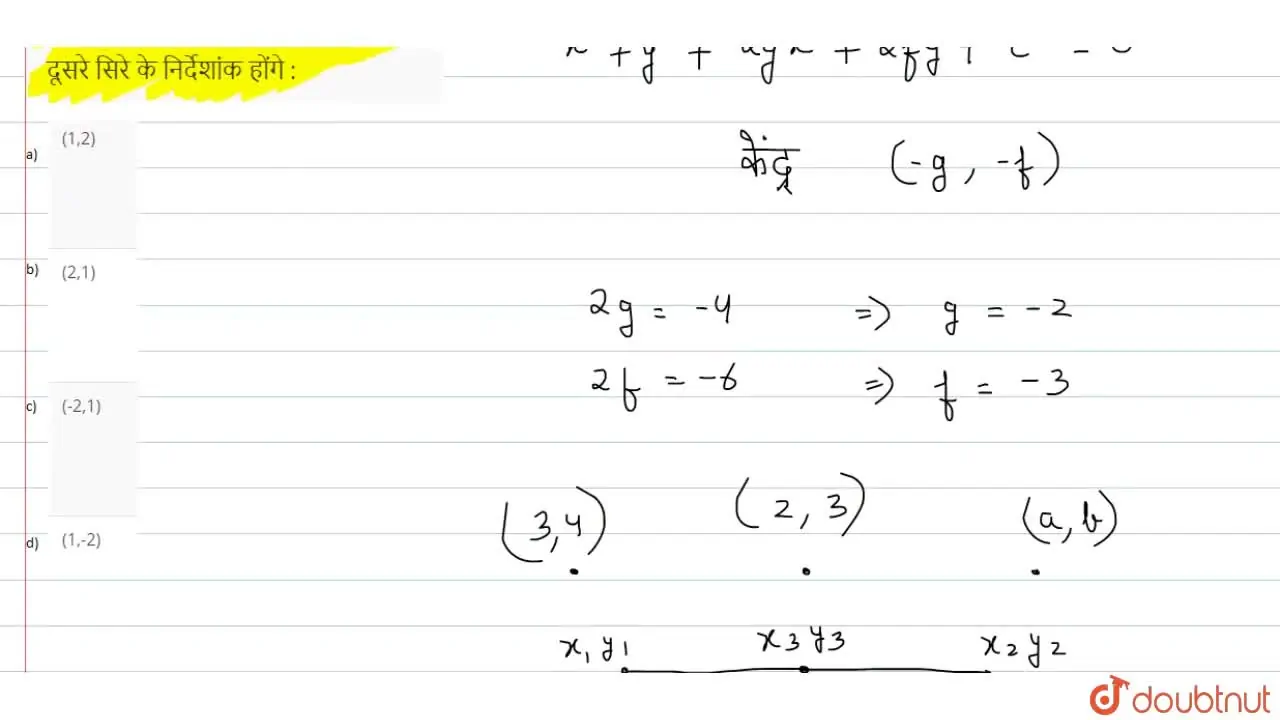 दूसरे सिरे के निर्देशांक होंगे :
a) (1,2)
b) (2,1)
c) (-2,1)
d) (1,-2)
केंद्र (-g, -f)
2g = -4 => g = -2
2f = -6 => f = -3
(3,4) (2,3) (a,b)
x₁ y₁ x₃ y₃ x₂ y₂
doubtnut